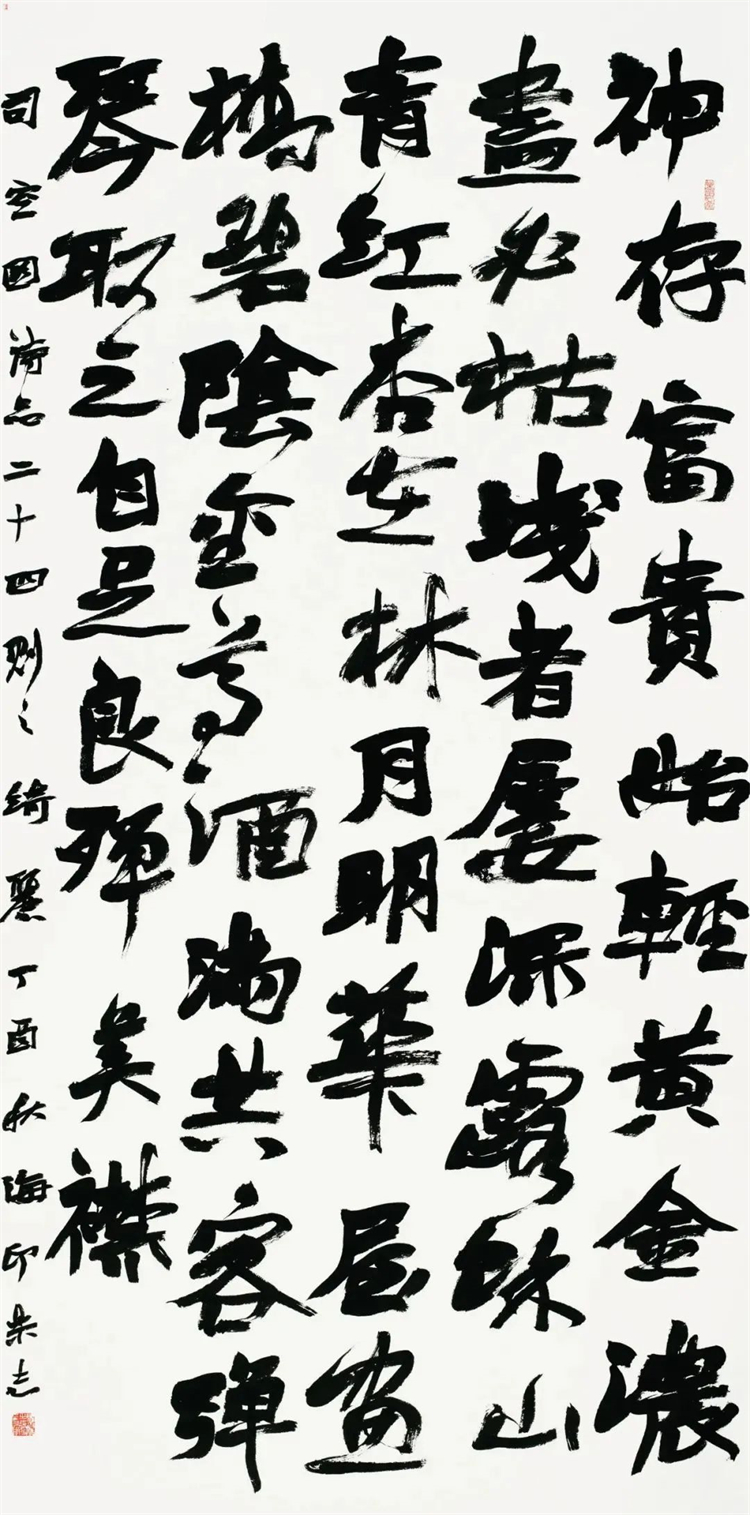 神存富貴始輕黄金濃
盡必枯淺者屢深露餘山
青紅杏在林月明華屋畫
橋碧陰金尊酒滿共客彈
琴取之自足良殫美襟
司空圖詩品二十四則之綺麗丁酉秋海印朱志